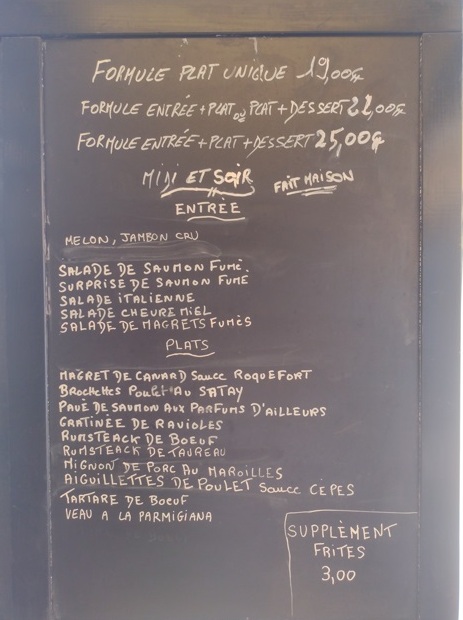 FORMULE PLAT UNIQUE 19,00€
FORMULE ENTRÉE + PLAT ou PLAT + DESSERT 22,00€
FORMULE ENTRÉE + PLAT + DESSERT 25,00€
MIDI ET SOIR FAIT MAISON
ENTRÈE
MELON, JAMBON CRU
SALADE DE SAUMON FUMÉ.
SURPRISE DE SAUMON FUMÉ
SALADE ITALIENNE
SALADE CHEVRE MIEL
SALADE DE MAGRETS FUMÉS
PLATS
MAGRET DE CANARD Sauce ROQUEFORT
BROCHETTES POULET AU SATAY
PAVÉ DE SAUMON AUX PARFUMS D'AILLEURS
GRATINÉE DE RAVIOLES
RUMSTEACK DE BOEUF
RUMSTEACK DE TAUREAU
MIGNON DE PORC AU MAROILLES
AIGUILLETTES DE POULET Sauce CÈPES
TARTARE DE BOEUF
VEAU A LA PARMIGIANA
SUPPLÈMENT
FRITES
3,00